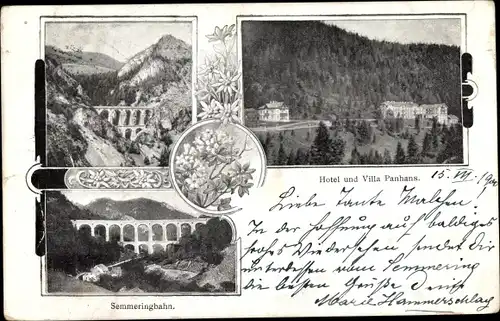 Hotel und Villa Panhans.
15. VII. 190
Liebe Tante Malchen.
In der Hoffnung auf baldiges
frohes Wiedersehen sendet dir
unterdessen vom Semmering
die besten Grüße Deine
Marie Hammerschlag
Semmeringbahn.